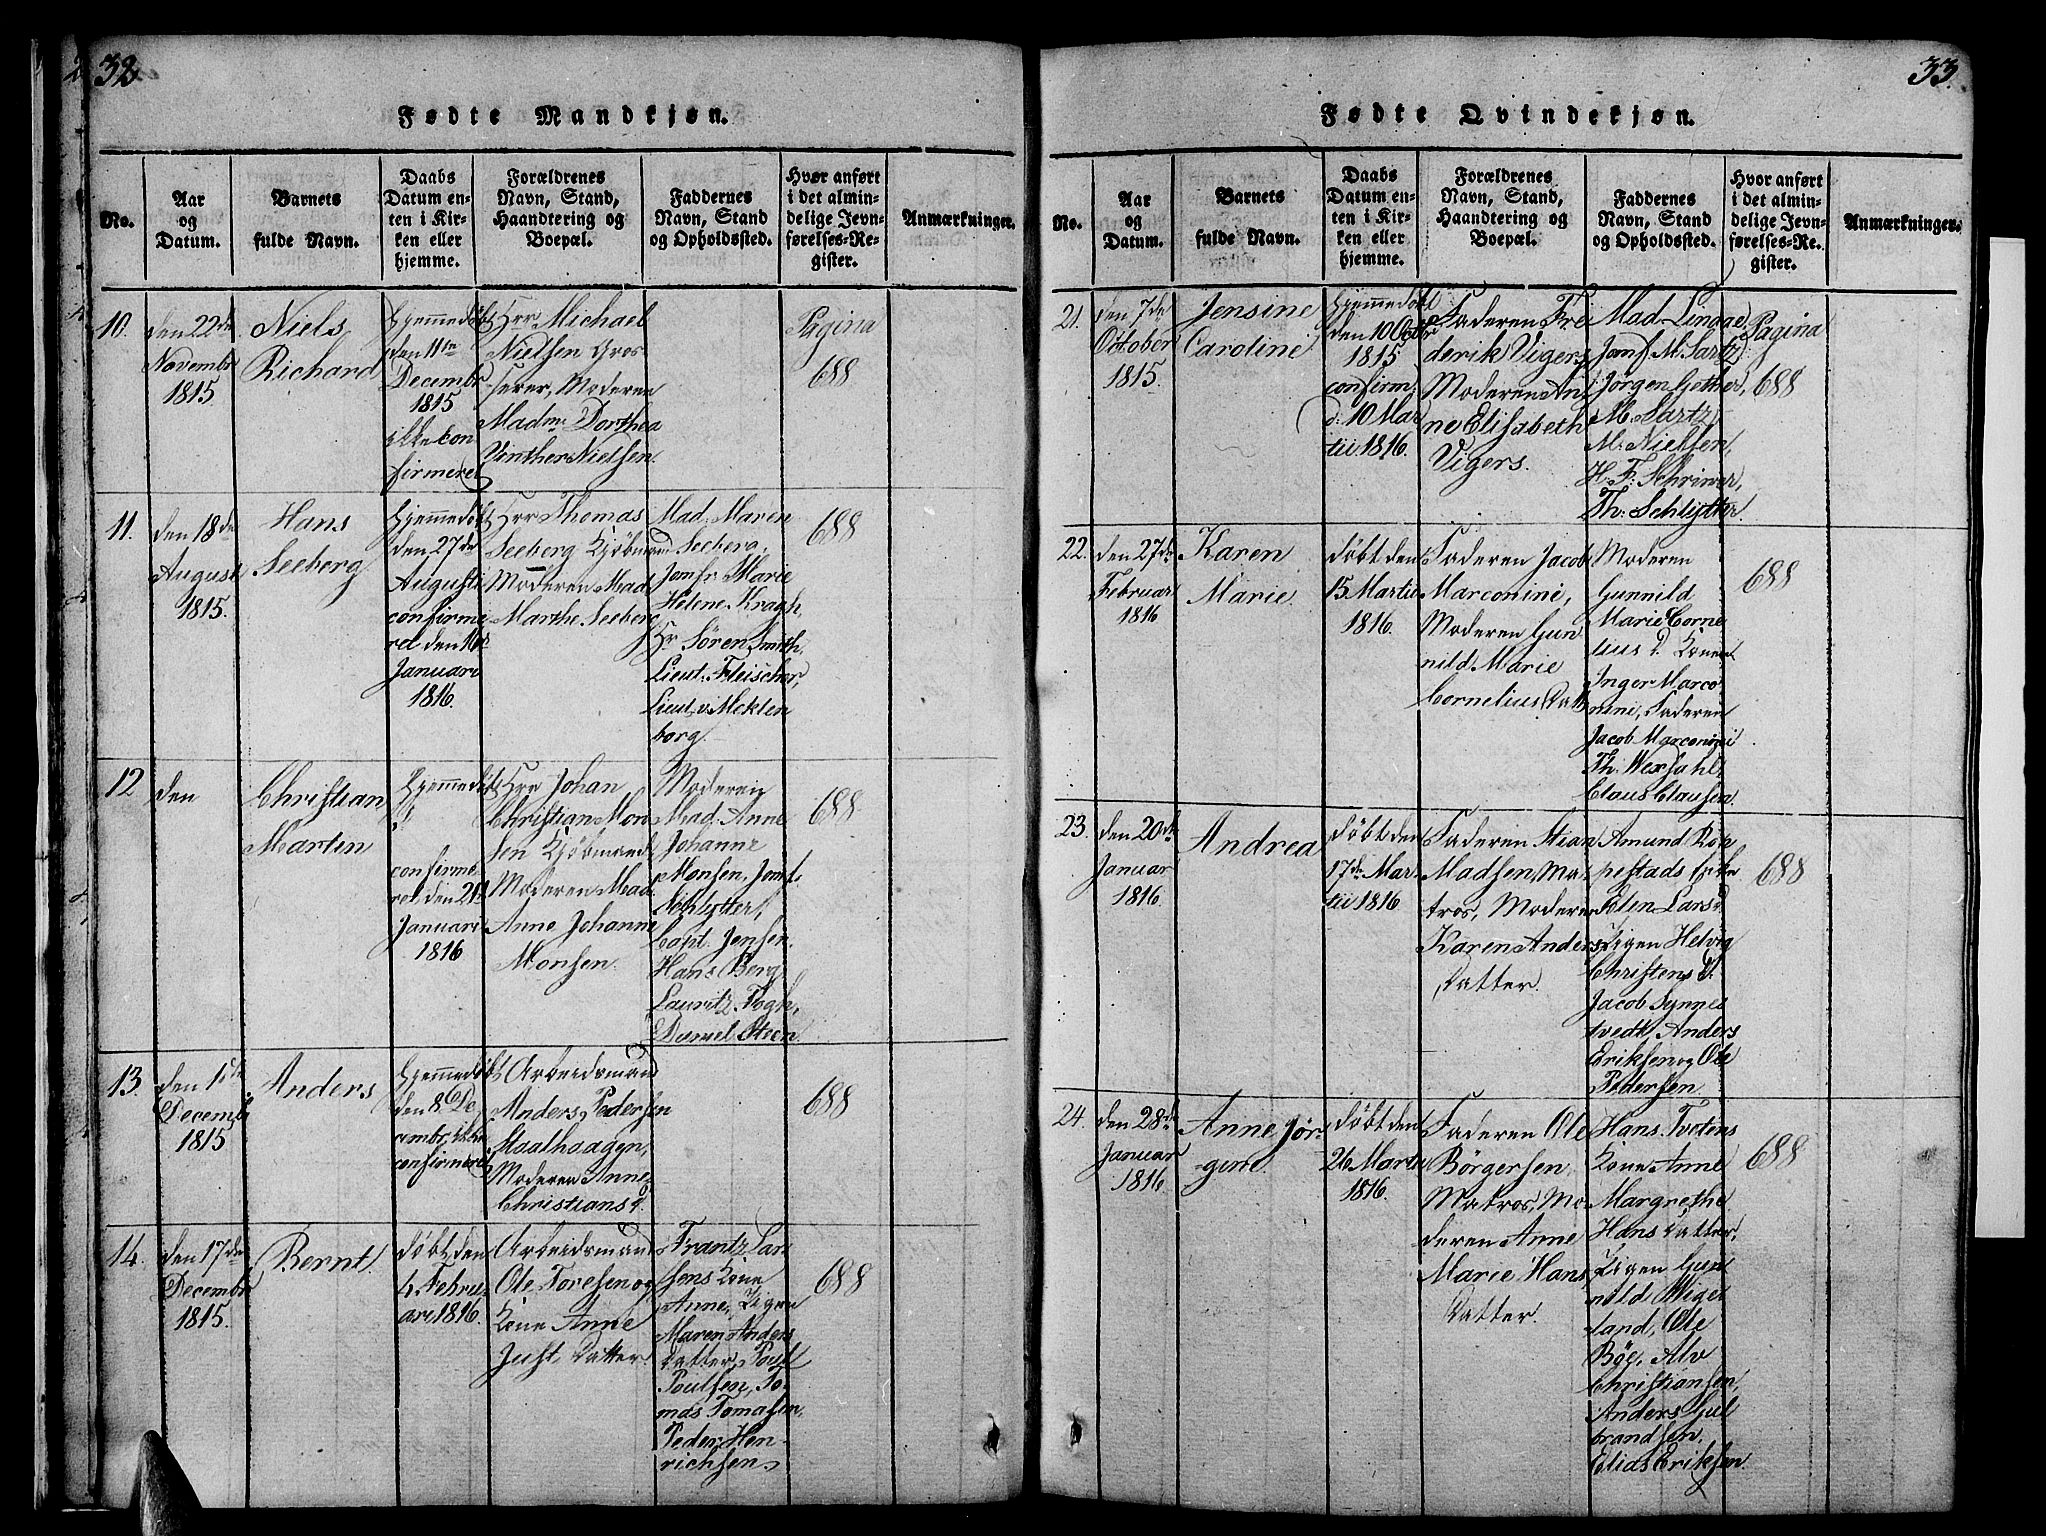 32
Fødte Mandkjøn.
No.
Aar
og
Datum.
Barnets
fulde Navn.
Daabs
Datum en-
ten i Kir-
ken eller
hjemme.
Forældrenes
Navn, Stand,
Haandtering og
Boepæl.
Faddernes
Navn, Stand
og Opholdssted.
Hvor anført
i det almin-
delige Jevn-
førelses-Re-
gister.
Anmærkninger.
10.
den 22de
Novembr
1815.
Niels
Richard
Hjemmedøbt
den 11te
Decembr
1815
ikke con
firmeret
Hrr Michael
Nielsen Gros
serer, Moderen
Madme Dorthea
Vinther Nielsen.
Pagina
688
11.
den 18de
August
1815.
Hans
Seeberg
Hjemmedøbt
den 27de
Augusti
confirme
ret den 16de
Januari
1816.
Hrr Thomas
Seeberg Kjøbmand
Moderen Mad.
Marthe Seeberg
Mad. Maren
Seeberg.
Jomfr Marie
Helene Kragh,
Hr Sören Smith.
Lieut. Fleischer,
Lieut. v. Meklen
borg.
688
12
den
Christian
Marten
Hjemmedøbt
confirme
ret den 21de
Januari
1816
Hrr Johan
Christian Mon
sen Kjøbmand
Moderen Mad.
Anne Johanne
Monsen.
Moderen
Mad. Anne
Johanne
Monsen, Jomf.
Schlytter,
Capt. Jensen.
Hans Berg
Lauritz Fogh,
Daniel Steen
688
13.
den 1ste
Decemb.
1815
Anders
Hjemmedøbt
den 8de De
cembr. ikke
confirmeret
Arbeidsmand
Anders Pedersen
Staalhaagen,
Moderen Anne
Christians d.
688
14.
den 17de
Decembr
1815.
Bernt.
døbt den
4 Febru
ari 1816.
Arbeidsmand
Ole Toresen og
Kone Anne
Just Datter.
Frantz Lar
sens Kone
Anne, Pigen
Maren Anders
Datter, Poul
Poulsen, To
mas Tomasen,
Peder Hen
richsen.
688
33.
Fødte Qvindekjøn.
No.
Aar
og
Datum.
Barnets
fulde Navn.
Daabs
Datum en-
ten i Kir-
ken eller
hjemme.
Forældrenes
Navn, Stand,
Haandtering og
Boepæl.
Faddernes
Navn, Stand
og Opholdssted.
Hvor anført
i det almin-
delige Jevn-
førelses-Re-
gister.
Anmærkninger.
21.
den 7de
October
1815.
Jensine
Caroline
Hjemmedøbt
den 10 Octbr
1815
confirm:
d. 10 Mar
tii 1816.
Faderen Fre
derik Vigers
Moderen An
ne Elisabeth
Vigers.
Mad. Lingae
Jomf. M. Sartz
Jörgen Gether,
M. Sartz
M. Nielsen,
H. F. Schriwer,
Th. Schlytter.
Pagina
688
22.
den 27de
Februar
1816
Karen
Marie.
døbt den
15 Martii
1816.
Faderen Jacob
Marconini,
Moderen Gun
nild Marie
Cornelius Datt
Moderen
Gunnild
Marie Corne
lius d. Konen
Inger Marco
nini, Faderen
Jacob Marconini
Th. Wexsahl,
Claus Clausen.
688
23.
den 20de
Januar
1816
Andrea
døbt den
17de Mar
tii 1816
Faderen Stian
Madsen, Ma
tros, Moderen
Karen Anders
Datter.
Amund Rop
pestads Enke
Elen Lars d.
Pigen Helvig
Christens d.
Jacob Synnes
tvedt, Anders
Eriksen og Ole
Pedersen
688
24.
den 28de
Januar
1816.
Anne Jør-
gine
døbt den
26 Martii
1816.
Faderen Ole
Börgersen
Matros, Mo
deren Anne
Marie Hans
Datter.
Hans Tvetens
Kone Anne
Margrethe
Hans Datter,
Pigen Gun
nild Wige
land, Ole
Böe, Alv
Christiansen,
Anders Gul
brandsen.
Elias Eriksen.
688